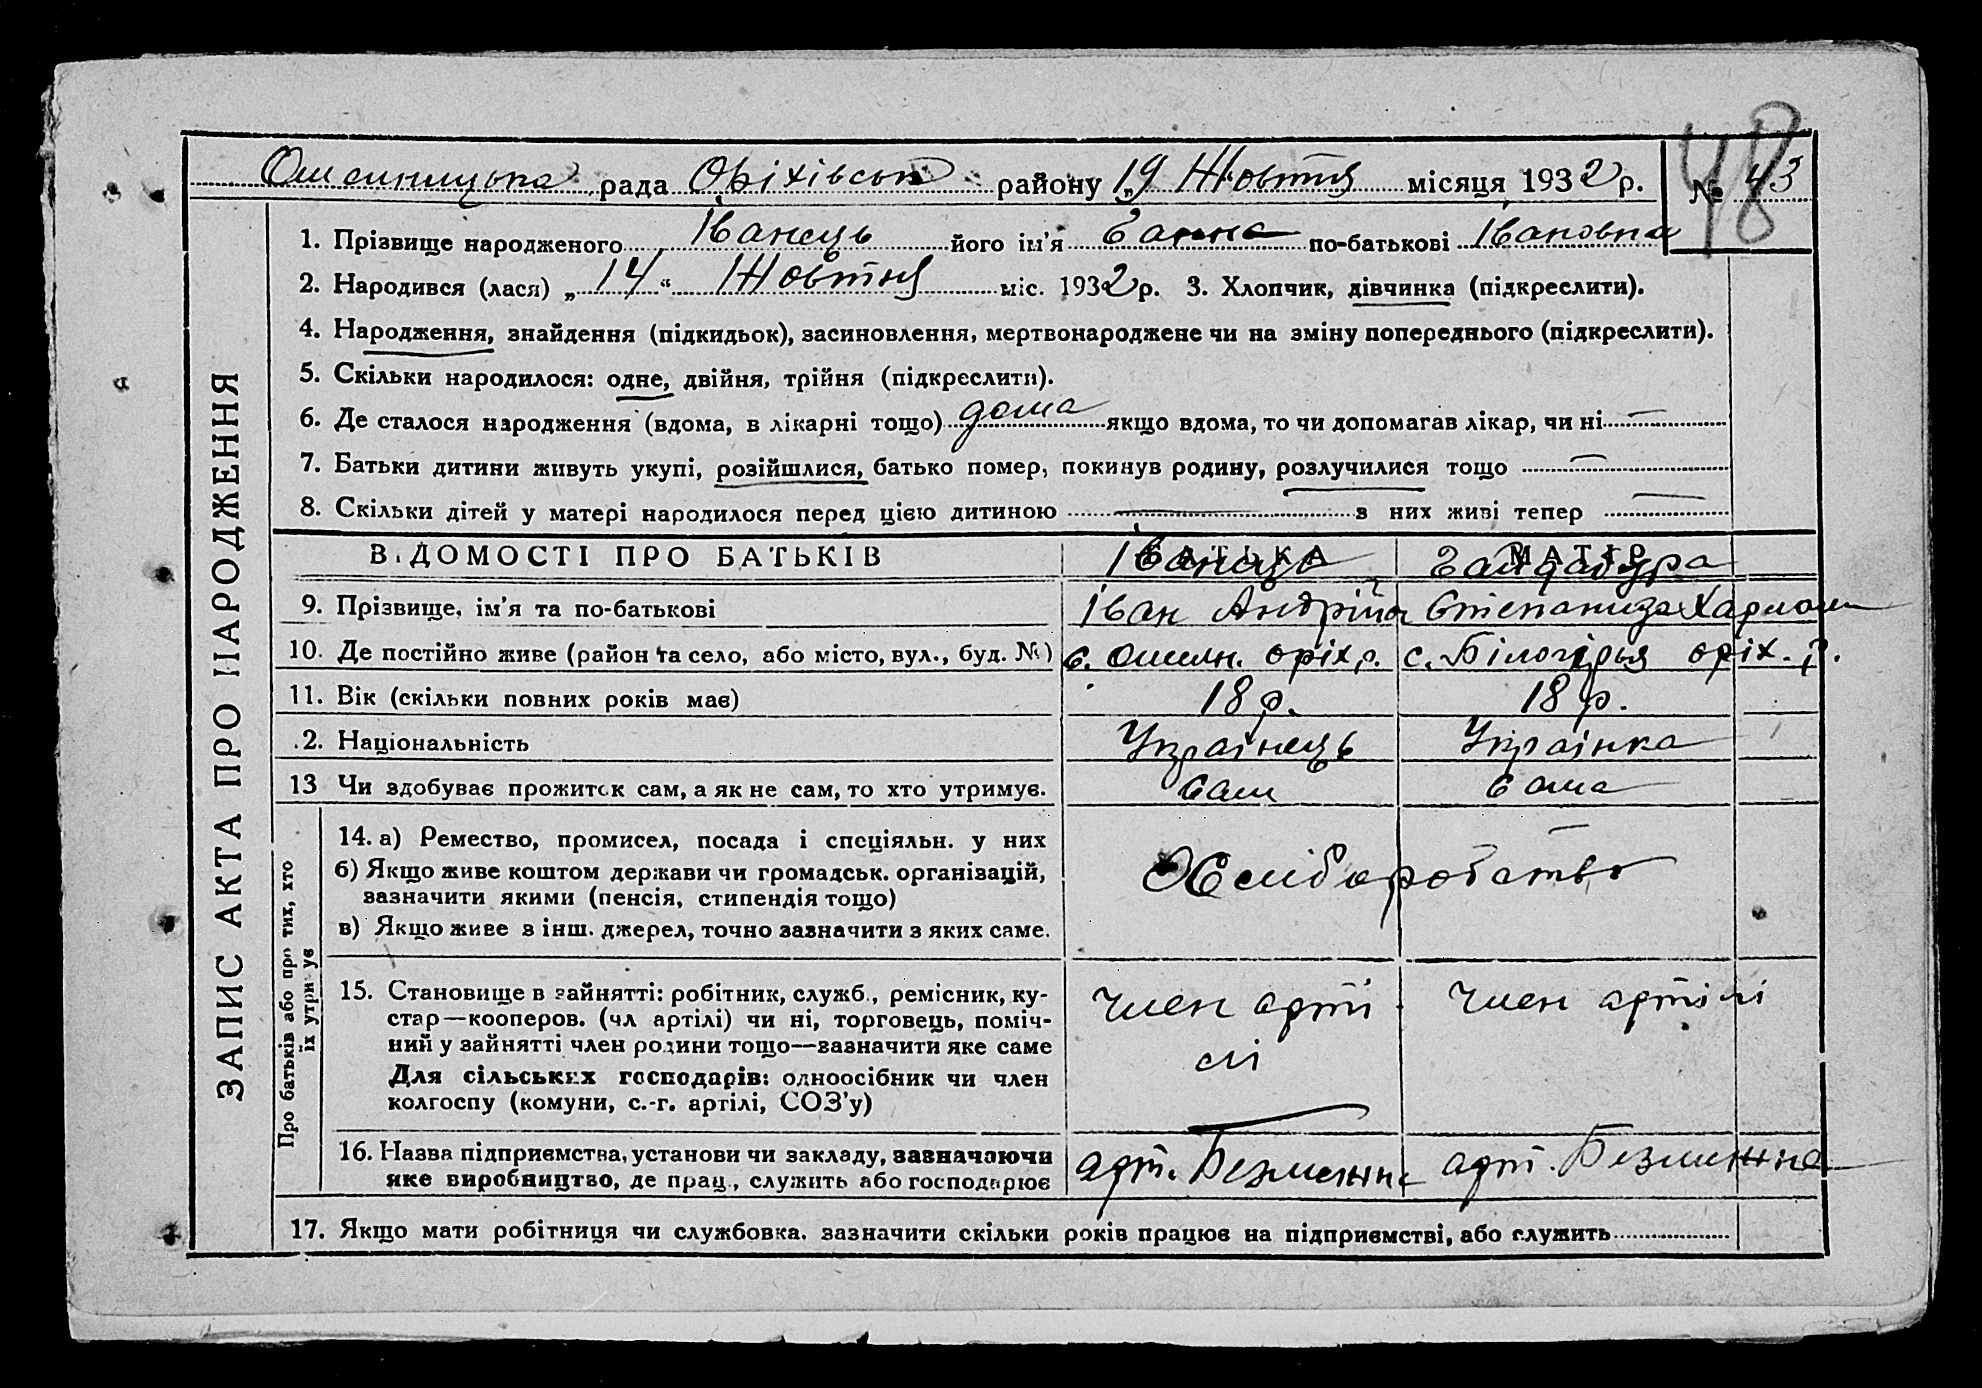 Омельницька рада Оріхівськ району „19 Жовтня місяця 1932 р. № 43
48
1. Прізвище народженого Іванець його ім’я Ганна по-батькові Івановна
2. Народився (лася) „14“ Жовтня міс. 1932 р. 3. Хлопчик, дівчинка (підкреслити).
4. Народження, знайдення (підкидьок), засиновлення, мертвонароджене чи на зміну попереднього (підкреслити).
5. Скільки народилося: одне, двійня, трійня (підкреслити).
6. Де сталося народження (вдома, в лікарні тощо) дома якщо вдома, то чи допомагав лікар, чи ні —
7. Батьки дитини живуть укупі, розійшлися, батько помер, покинув родину, розлучилися тощо —
8. Скільки дітей у матері народилося перед цією дитиною — з них живі тепер —
ЗАПИС АКТА ПРО НАРОДЖЕННЯ
ВІДОМОСТІ ПРО БАТЬКІВ БАТЬКА МАТІР
Іванець Гайдабура
9. Прізвище, ім’я та по-батькові Іван Андрій Степанида Харлам
10. Де постійно живе (район та село, або місто, вул., буд. №) с. Омельн. оріх р. с. Білогірья оріх. р.
11. Вік (скільки повних років має) 18 р. 18 р.
12. Національність Українець Українка
13 Чи здобуває прожиток сам, а як не сам, то хто утримує. Сам Сама
Про батьків або про тих, хто їх утримує
14. а) Ремество, промисел, посада і спеціяльн. у них
б) Якщо живе коштом держави чи громадськ. організацій,
зазначити якими (пенсія, стипендія тощо)
Хліборобство
в) Якщо живе з інш. джерел, точно зазначити з яких саме.
15. Становище в зайнятті: робітник, служб., ремісник, ку-
стар—кооперов. (чл артілі) чи ні, торговець, поміч-
ний у зайнятті член родини тощо—зазначити яке саме
Для сільських господарів: одноосібник чи член
колгоспу (комуни, с.-г. артілі, СОЗ’у)
член арті
лі
член артілі
16. Назва підприємства, установи чи закладу, зазначаючи
яке виробництво, де прац., служить або господарює
арт. Безменна арт. Безменна
17. Якщо мати робітниця чи службовка, зазначити скільки років працює на підприємстві, або служить